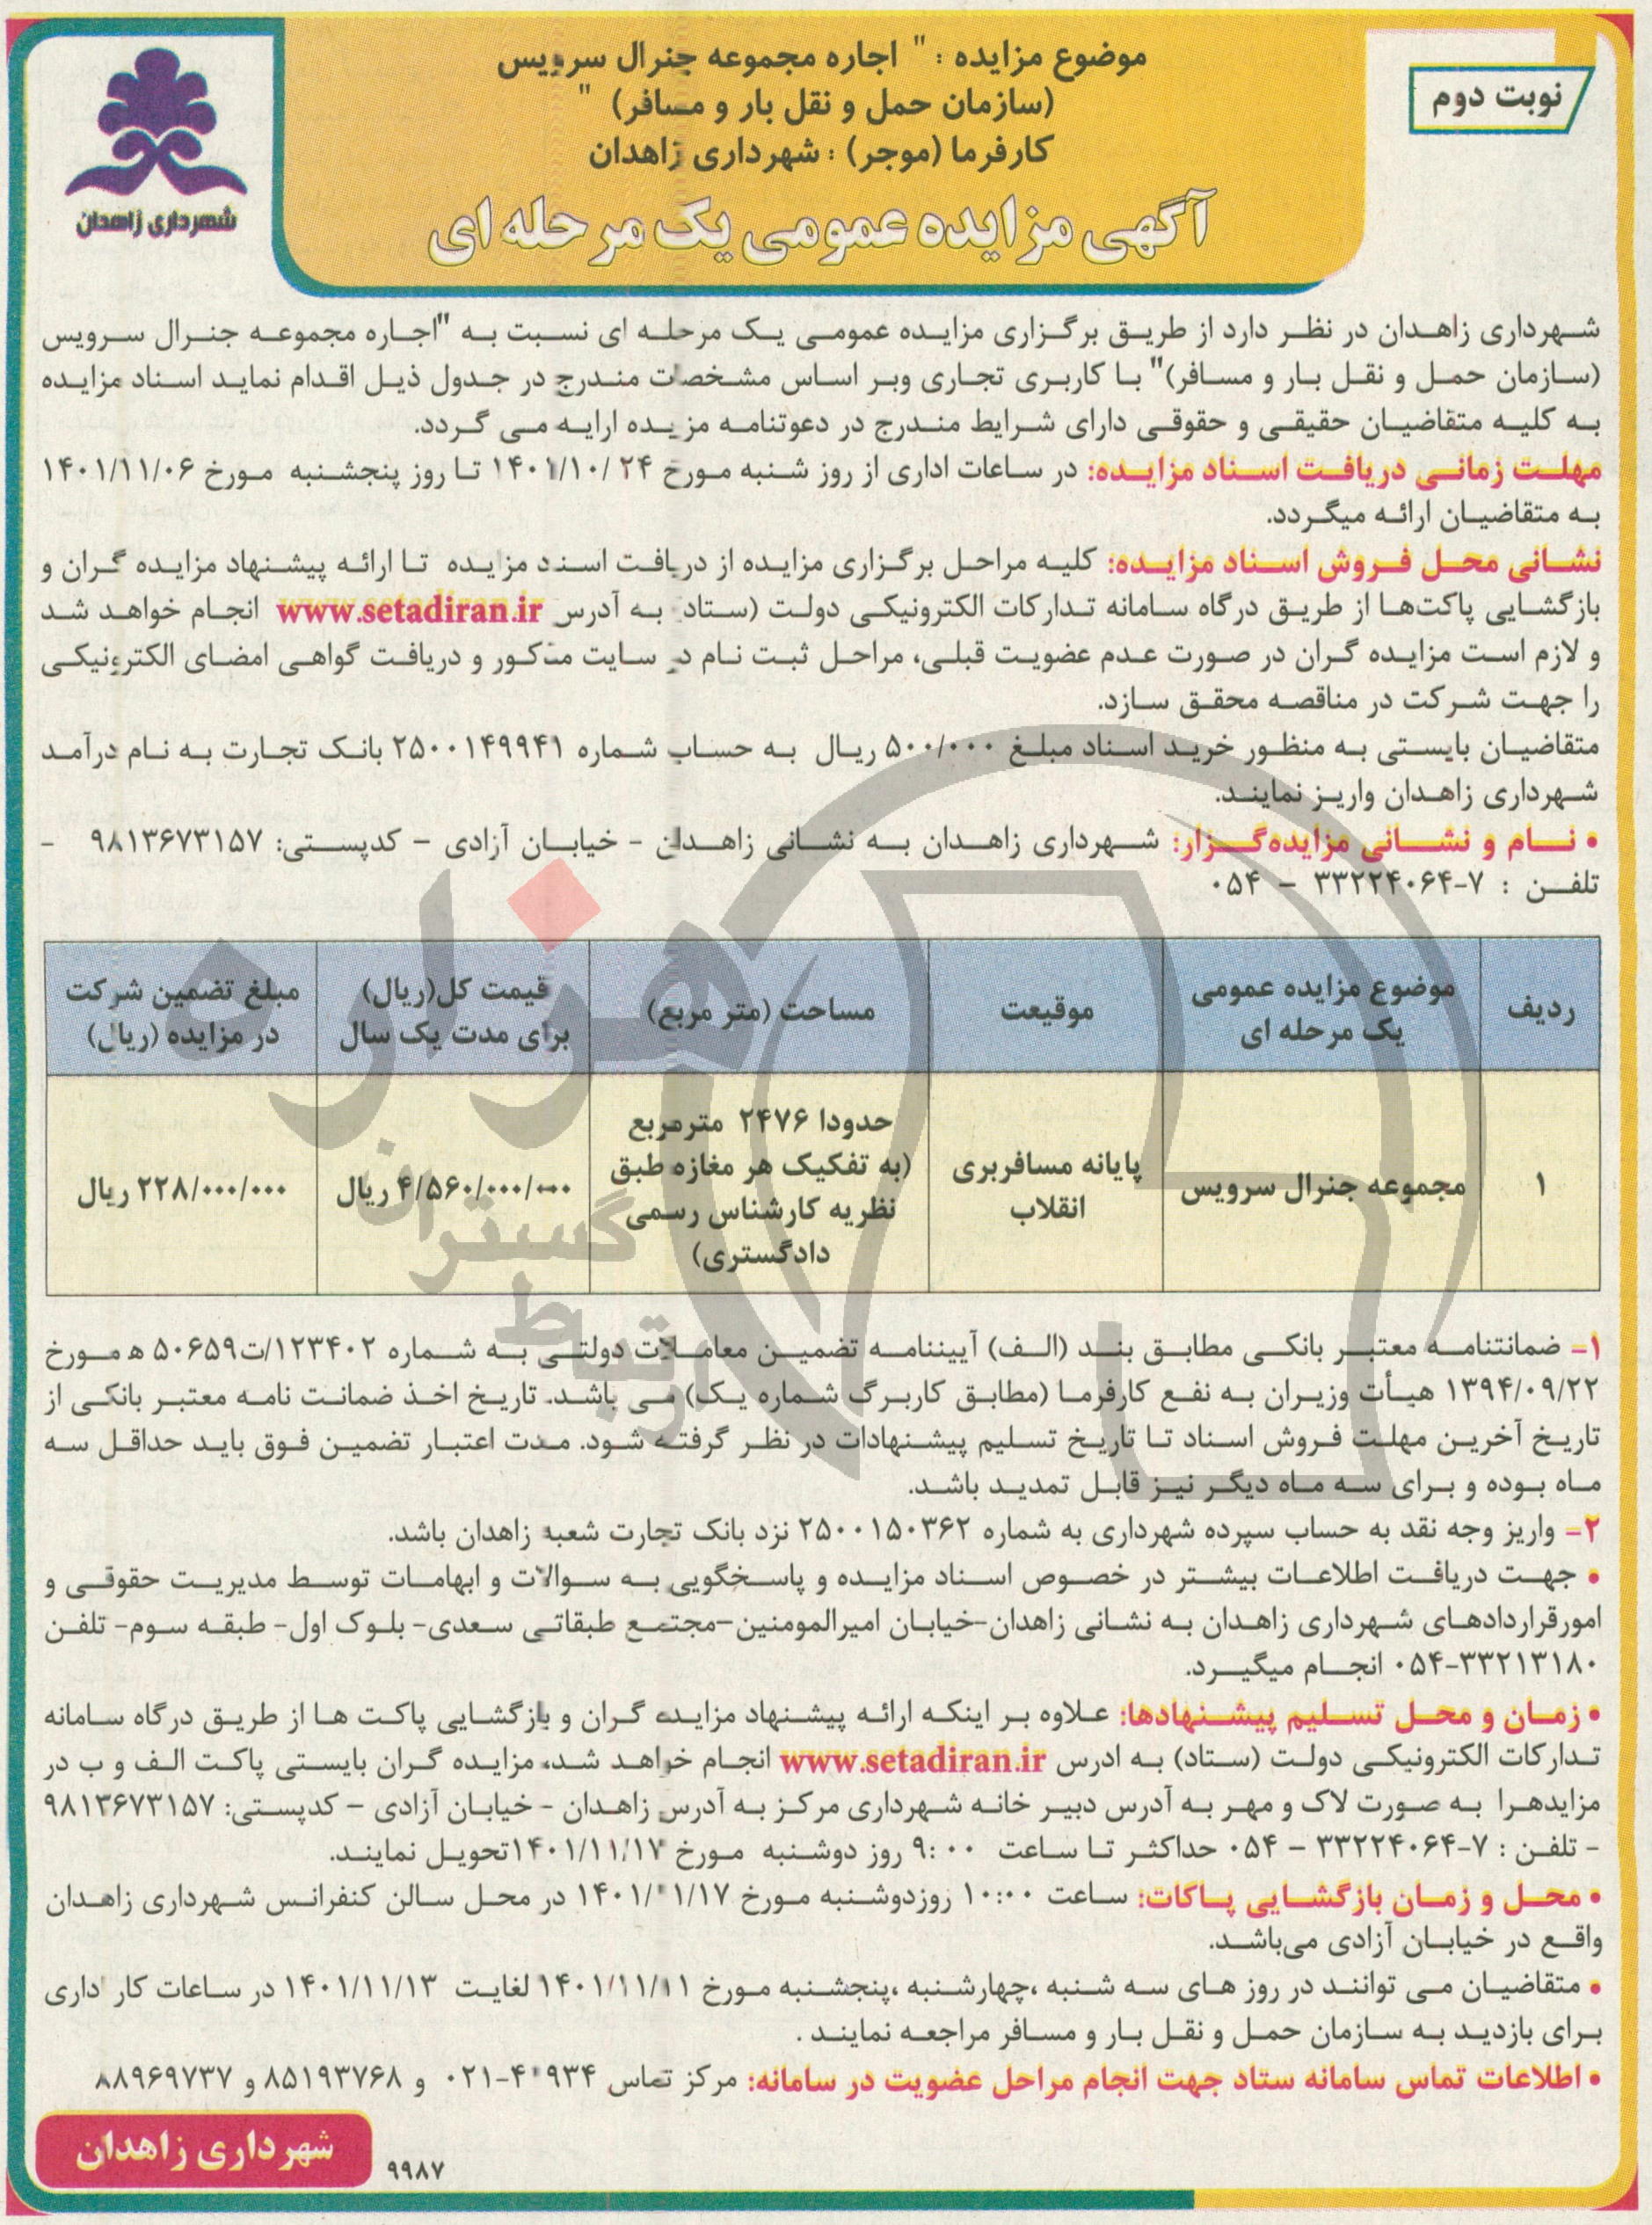 نوبت دوم
موضوع مزایده : " اجاره مجموعه جنرال سرویس
(سازمان حمل و نقل بار و مسافر) "
کارفرما (موجر) : شهرداری زاهدان
آگهی مزایده عمومی یک مرحله ای
شهرداری زاهدان
شهرداری زاهدان در نظر دارد از طریق برگزاری مزایده عمومی یک مرحله ای نسبت به "اجاره مجموعه جنرال سرویس
(سازمان حمل و نقل بار و مسافر)" با کاربری تجاری وبر اساس مشخصات مندرج در جدول ذیل اقدام نماید اسناد مزایده
به کلیه متقاضیان حقیقی و حقوقی دارای شرایط مندرج در دعوتنامه مزیده ارایه می گردد.
مهلت زمانی دریافت اسناد مزایده: در ساعات اداری از روز شنبه مورخ ۱۴۰۱/۱۰/۲۴ تا روز پنجشنبه مورخ ۱۴۰۱/۱۱/۰۶
به متقاضیان ارائه میگردد.
نشانی محل فروش اسناد مزایده: کلیه مراحل برگزاری مزایده از دریافت اسند مزیده تا ارائه پیشنهاد مزایده گران و
بازگشایی پاکت‌ها از طریق درگاه سامانه تدارکات الکترونیکی دولت (ستاد) به آدرس www.setadiran.ir انجام خواهد شد
و لازم است مزایده گران در صورت عدم عضویت قبلی، مراحل ثبت نام در سایت مذکور و دریافت گواهی امضای الکترونیکی
را جهت شرکت در مناقصه محقق سازد.
متقاضیان بایستی به منظور خرید اسناد مبلغ ۵۰۰/۰۰۰ ریال به حساب شماره ۲۵۰۰۱۴۹۹۴۱ بانک تجارت به نام درآمد
شهرداری زاهدان واریز نمایند.
• نام و نشانی مزایده‌گزار: شهرداری زاهدان به نشانی زاهدان - خیابان آزادی – کدپستی: ۹۸۱۳۶۷۳۱۵۷ -
تلفن : ۷-۳۳۲۲۴۰۶۴ – ۰۵۴
ردیف
موضوع مزایده عمومی
یک مرحله ای
موقیعت
مساحت (متر مربع)
قیمت کل(ریال)
برای مدت یک سال
مبلغ تضمین شرکت
در مزایده (ریال)
۱
مجموعه جنرال سرویس
پایانه مسافربری
انقلاب
حدودا ۲۴۷۶ مترمربع
(به تفکیک هر مغازه طبق
نظریه کارشناس رسمی
دادگستری)
۴/۵۶۰/۰۰۰/۰۰۰ ریال
۲۲۸/۰۰۰/۰۰۰ ریال
۱– ضمانتنامه معتبر بانکی مطابق بند (الف) آییننامه تضمین معاملات دولتی به شماره ۱۲۳۴۰۲/ت۵۰۶۵۹ ه مورخ
۱۳۹۴/۰۹/۲۲ هیأت وزیران به نفع کارفرما (مطابق کاربرگ شماره یک) می باشد. تاریخ اخذ ضمانت نامه معتبر بانکی از
تاریخ آخرین مهلت فروش اسناد تا تاریخ تسلیم پیشنهادات در نظر گرفته شود. مدت اعتبار تضمین فوق باید حداقل سه
ماه بوده و برای سه ماه دیگر نیز قابل تمدید باشد.
۲– واریز وجه نقد به حساب سپرده شهرداری به شماره ۲۵۰۰۱۵۰۳۶۲ نزد بانک تجارت شعبه زاهدان باشد.
• جهت دریافت اطلاعات بیشتر در خصوص اسناد مزایده و پاسخگویی به سوالات و ابهامات توسط مدیریت حقوقی و
امورقراردادهای شهرداری زاهدان به نشانی زاهدان-خیابان امیرالمومنین-مجتمع طبقاتی سعدی- بلوک اول- طبقه سوم- تلفن
۰۵۴-۳۳۲۱۳۱۸۰ انجام میگیرد.
• زمان و محل تسلیم پیشنهادها: علاوه بر اینکه ارائه پیشنهاد مزایده گران و بازگشایی پاکت ها از طریق درگاه سامانه
تدارکات الکترونیکی دولت (ستاد) به ادرس www.setadiran.ir انجام خواهد شد، مزایده گران بایستی پاکت الف و ب در
مزایدهرا به صورت لاک و مهر به آدرس دبیر خانه شهرداری مرکز به آدرس زاهدان - خیابان آزادی – کدپستی: ۹۸۱۳۶۷۳۱۵۷
- تلفن : ۷-۳۳۲۲۴۰۶۴ – ۰۵۴ حداکثر تا ساعت ۹:۰۰ روز دوشنبه مورخ ۱۴۰۱/۱۱/۱۷تحویل نمایند.
• محل و زمان بازگشایی پاکات: ساعت ۱۰:۰۰ روزدوشنبه مورخ ۱۴۰۱/۱۱/۱۷ در محل سالن کنفرانس شهرداری زاهدان
واقع در خیابان آزادی می‌باشد.
• متقاضیان می توانند در روز های سه شنبه ،چهارشنبه ،پنجشنبه مورخ ۱۴۰۱/۱۱/۱۱ لغایت ۱۴۰۱/۱۱/۱۳ در ساعات کار اداری
برای بازدید به سازمان حمل و نقل بار و مسافر مراجعه نمایند .
• اطلاعات تماس سامانه ستاد جهت انجام مراحل عضویت در سامانه: مرکز تماس ۰۲۱-۴۱۹۳۴ و ۸۵۱۹۳۷۶۸ و ۸۸۹۶۹۷۳۷
شهرداری زاهدان
۹۹۸۷
هزاره
گستران
ارتباط